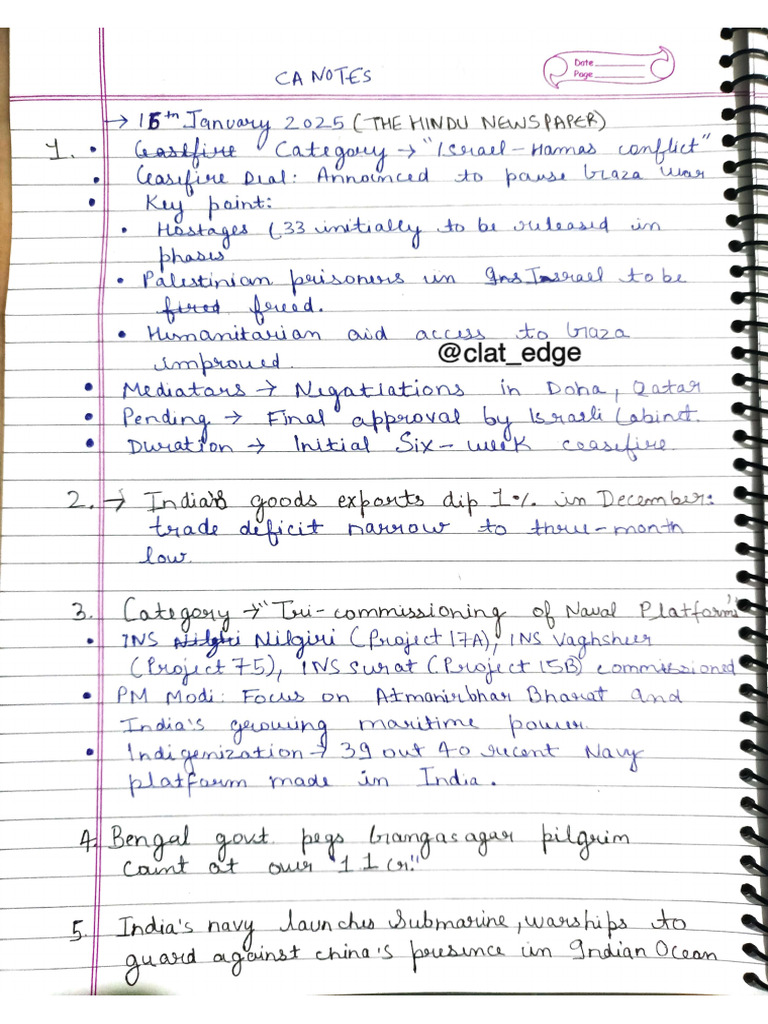 CA NOTES
Date
Page
→ 16th January 2025 (THE HINDU NEWSPAPER)
1. • Ceasifire Category → "Israel-Hamas conflict"
• Ceasifire Deal: Announced to pause Gaza war
• Key point:
• Hostages (33 initially to be released in
phases
• Palestinian prisoners in Israel to be
fired freed.
• Humanitarian aid access to Gaza
improved.
@clat_edge
• Mediators → Negatiations in Doha, Qatar
• Pending → Final approval by Israeli Cabinet.
• Duration → Initial Six-week ceasefire.
2. → India's goods exports dip 1% in December:
trade deficit narrow to three-month
low.
3. Category → "Tri-commissioning of Naval Platforms"
• INS Nilgiri Nilgiri (Project 17A), INS Vaghsheer
(Project 75), INS Surat (Project 15B) commissioned
• PM Modi: Focus on Atmanirbhar Bharat and
India's growing maritime power.
• Indigenization → 39 out 40 recent Navy
platform made in India.
4. Bengal govt. pegs Gangasagar pilgrim
count at over "1 1 cr."
5. India's navy launches Submarine, warships to
guard against china's presence in Indian Ocean